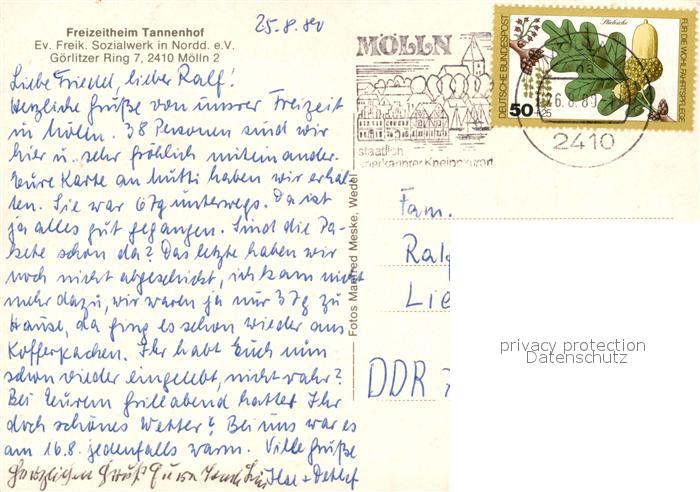 Freizeitheim Tannenhof
Ev. Freik. Sozialwerk in Nordd. e.V.
Görlitzer Ring 7, 2410 Mölln 2
25.8.80
Liebe Friedel, lieber Ralf!
Herzliche Grüße von unsrer Freizeit
in Mölln. 38 Personen sind wir
hier u. sehr fröhlich miteinander.
Eure Karte an Mutti haben wir erhal-
ten. Sie war 6Tg unterwegs. Da ist
ja alles gut gegangen. Sind die Pa-
kete schon da? Das letzte haben wir
noch nicht abgeschickt, ich kam nicht
mehr dazu, wir waren ja nur 3Tg zu
Hause, da ging es schon wieder ans
Kofferpacken. Ihr habt Euch nun
schon wieder eingelebt, nicht wahr?
Bei Eurem Grillabend hattet Ihr
doch schönes Wetter? Bei uns war es
am 16.8. jedenfalls warm. Viele Grüße
Ilse + Detlef
Herzlichen Gruß
Fotos Manfred Meske, Wedel
MÖLLN
staatlich
anerkannter Kneippkurort
DEUTSCHE BUNDESPOST
50+25
Stieleiche
FÜR DIE WOHLFAHRTSPFLEGE
2410
Fam.
Ralf
Lie
DDR
privacy protection
Datenschutz